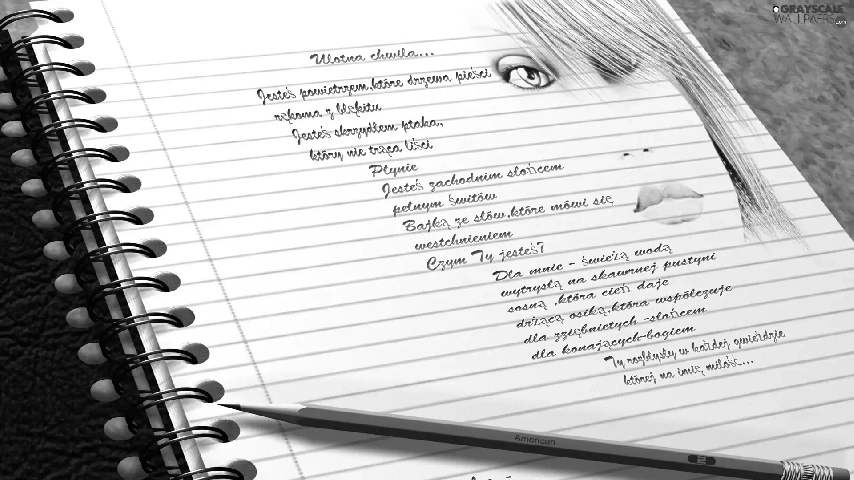 GRAYSCALE
WALLPAPERS.com
Ulotna chwila...
Jesteś powietrzem,które drzewa pieści
rękoma z błękitu
Jesteś skrzydłem ptaka,
który nie trąca liści
Płynie
Jesteś zachodnim słońcem
pełnym świtów
Bajką ze słów,które mówi się
westchnieniem
Czym Ty jesteś?
Dla mnie - świeżą wodą
wytryslą na skawrnej pustyni
sosną ,która cień daje
drżącą osiką,która współczuje
dla zziębniętych -słońcem
dla konających-bogiem
Ty rozbłysły w każdej gwieździe
której na imię miłość...
American
2